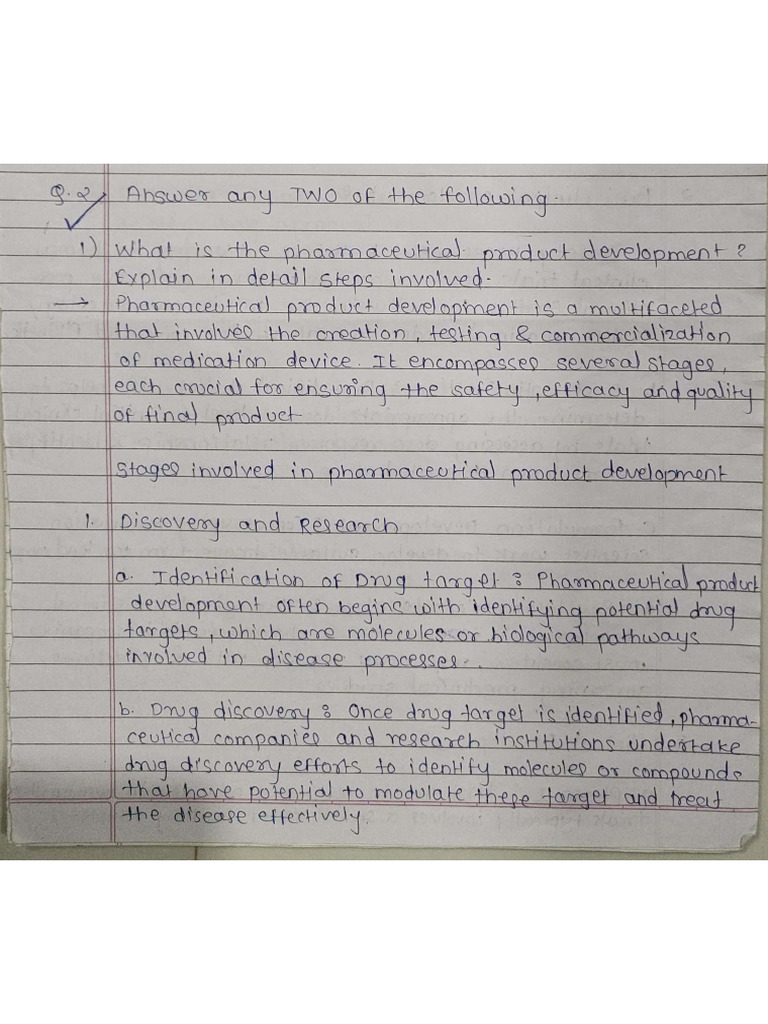 Q.2, Answer any TWO of the following.
1) What is the pharmaceutical product development?
Explain in detail steps involved.
→ Pharmaceutical product development is a multifaceted
that involves the creation, testing & commercialization
of medication device. It encompasses several stages,
each crucial for ensuring the safety, efficacy and quality
of final product.
Stages involved in pharmaceutical product development
1. Discovery and Research
a. Identification of Drug target : Pharmaceutical product
development often begins with identifying potential drug
targets, which are molecules or biological pathways
involved in disease processes.
b. Drug discovery : Once drug target is identified, pharma-
ceutical companies and research institutions undertake
drug discovery efforts to identify molecules or compounds
that have potential to modulate these target and treat
the disease effectively.